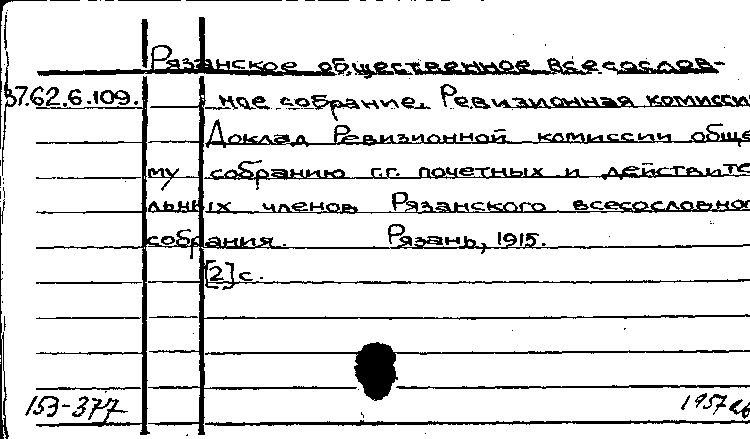 Рязанское общественное всесослов-
37.62.6.109. ное собрание. Ревизионная комисси
Доклад Ревизионной комиссии обще
му собранию г.г. почетных и действите
льных членов Рязанского всесословно
собрания. Рязань, 1915.
[2] с.
153-377 1957